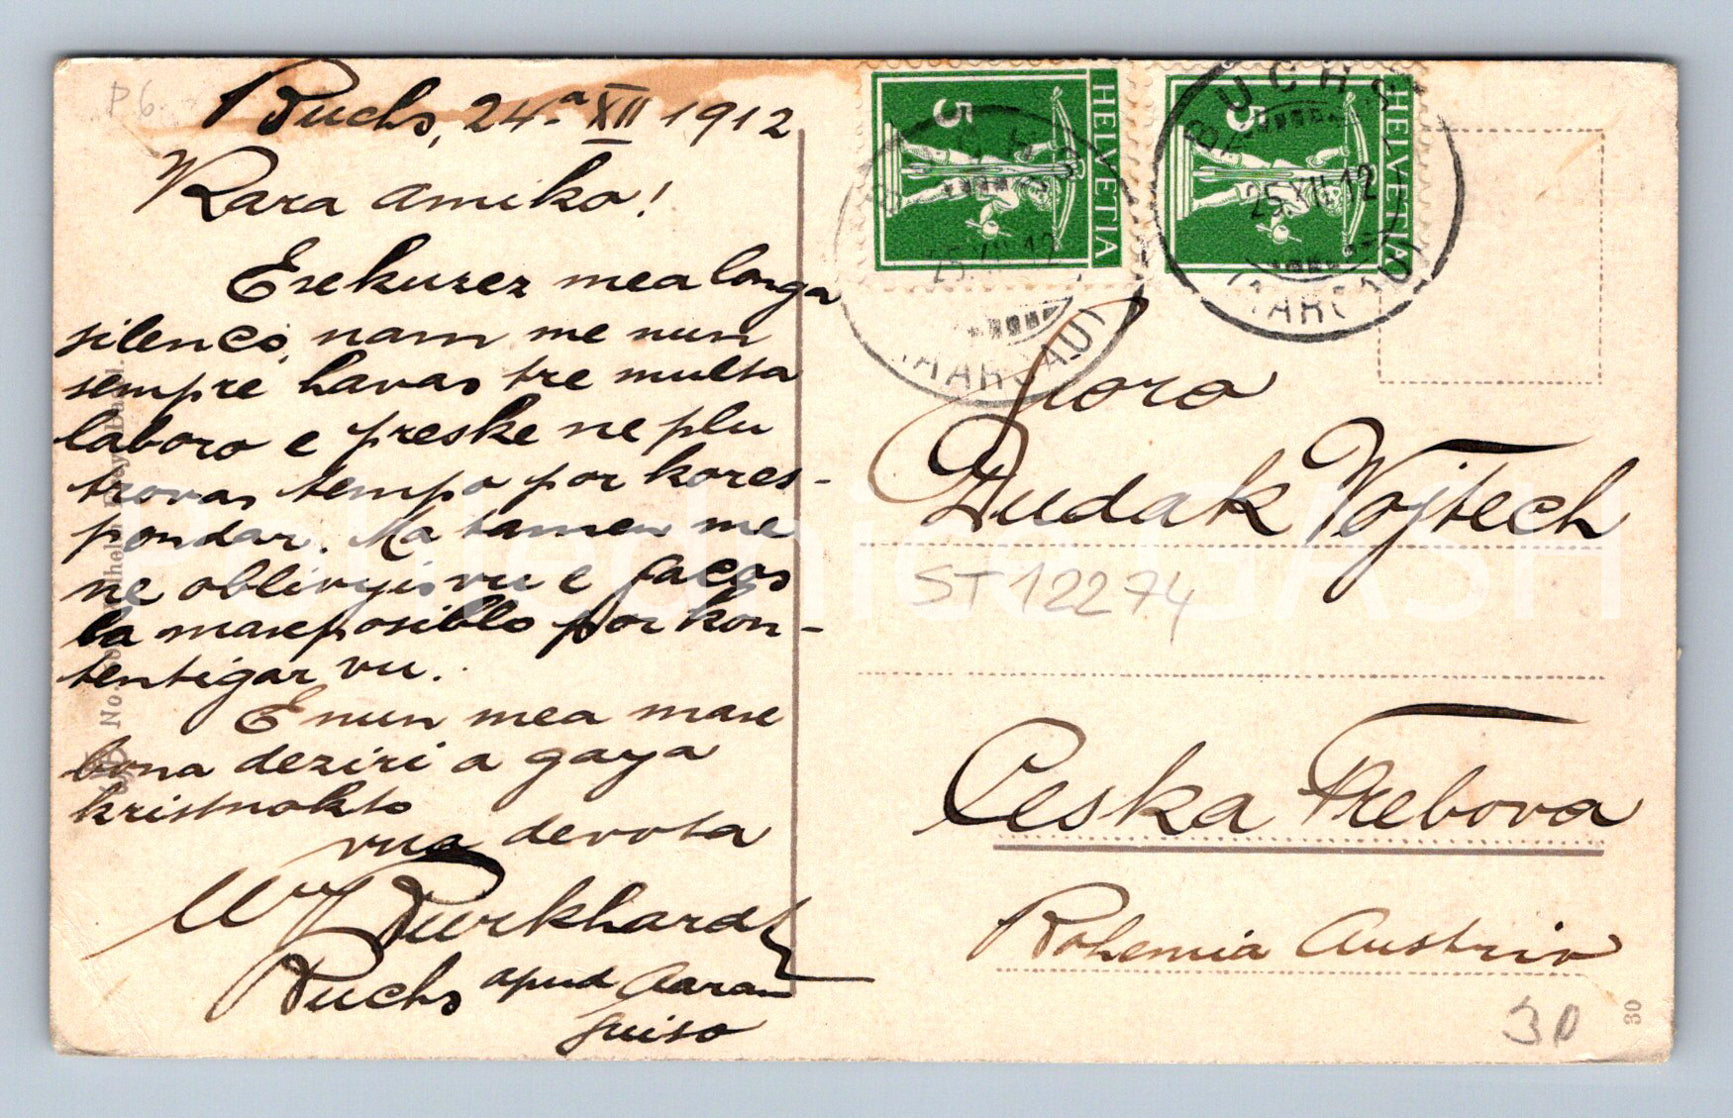 P6.
Buchs, 24.a XII 1912
Kara amiko!
Exkuzez mea longa
silenco, nam me nun
sempre havas tre multa
laboro e preske ne plu
trovas tempo por kores-
pondar. Ma tamen me
ne oblivyis vu e facos
la maxeposiblo por kon-
tentigar vu.
E nun mea maxe
bona deziri a gaya
kristnokto
vua devota
Wy Burkhardt
Buchs apud Aarau
Suiso
HELVETIA
5
HELVETIA
5
BUCHS
25.XII.12
(AARGAU)
BUCHS
25.XII.12
(AARGAU)
Sioro
Dudak Vojtech
ST 12274
Ceska Trebova
Bohemia Austrio
30
30
No.